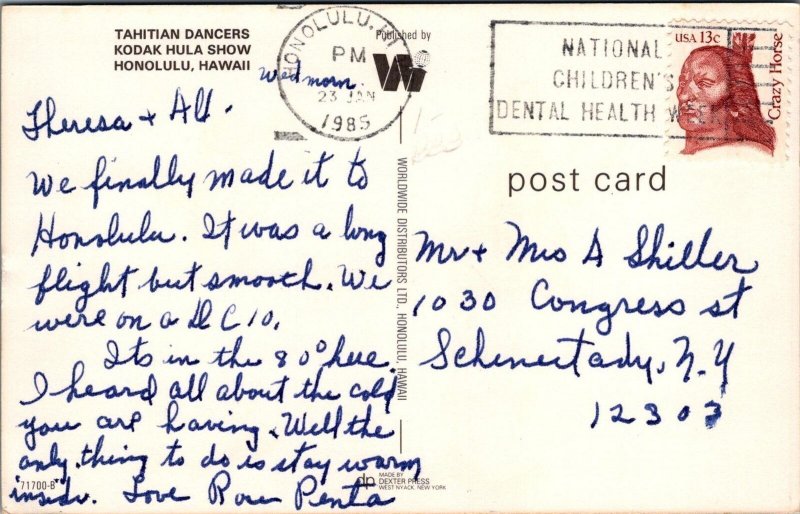 TAHITIAN DANCERS
KODAK HULA SHOW
HONOLULU, HAWAII
Wed morn.
Theresa + Al.
We finally made it to
Honolulu. It was a long
flight but smooth. We
were on a DC 10.
Its in the 80° here.
I heard all about the cold
you are having. Well the
only thing to do is stay warm
inside. Love Rose Penta
71700-B
HONOLULU, HI
PM
23 JAN
1985
Published by
WORLDWIDE DISTRIBUTORS LTD., HONOLULU, HAWAII
dp MADE BY
DEXTER PRESS
WEST NYACK, NEW YORK
NATIONAL
CHILDREN'S
DENTAL HEALTH WEEK
USA 13c
Crazy Horse
post card
Mr + Mrs A Shiller
1030 Congress st
Schenectady, N.Y
12303